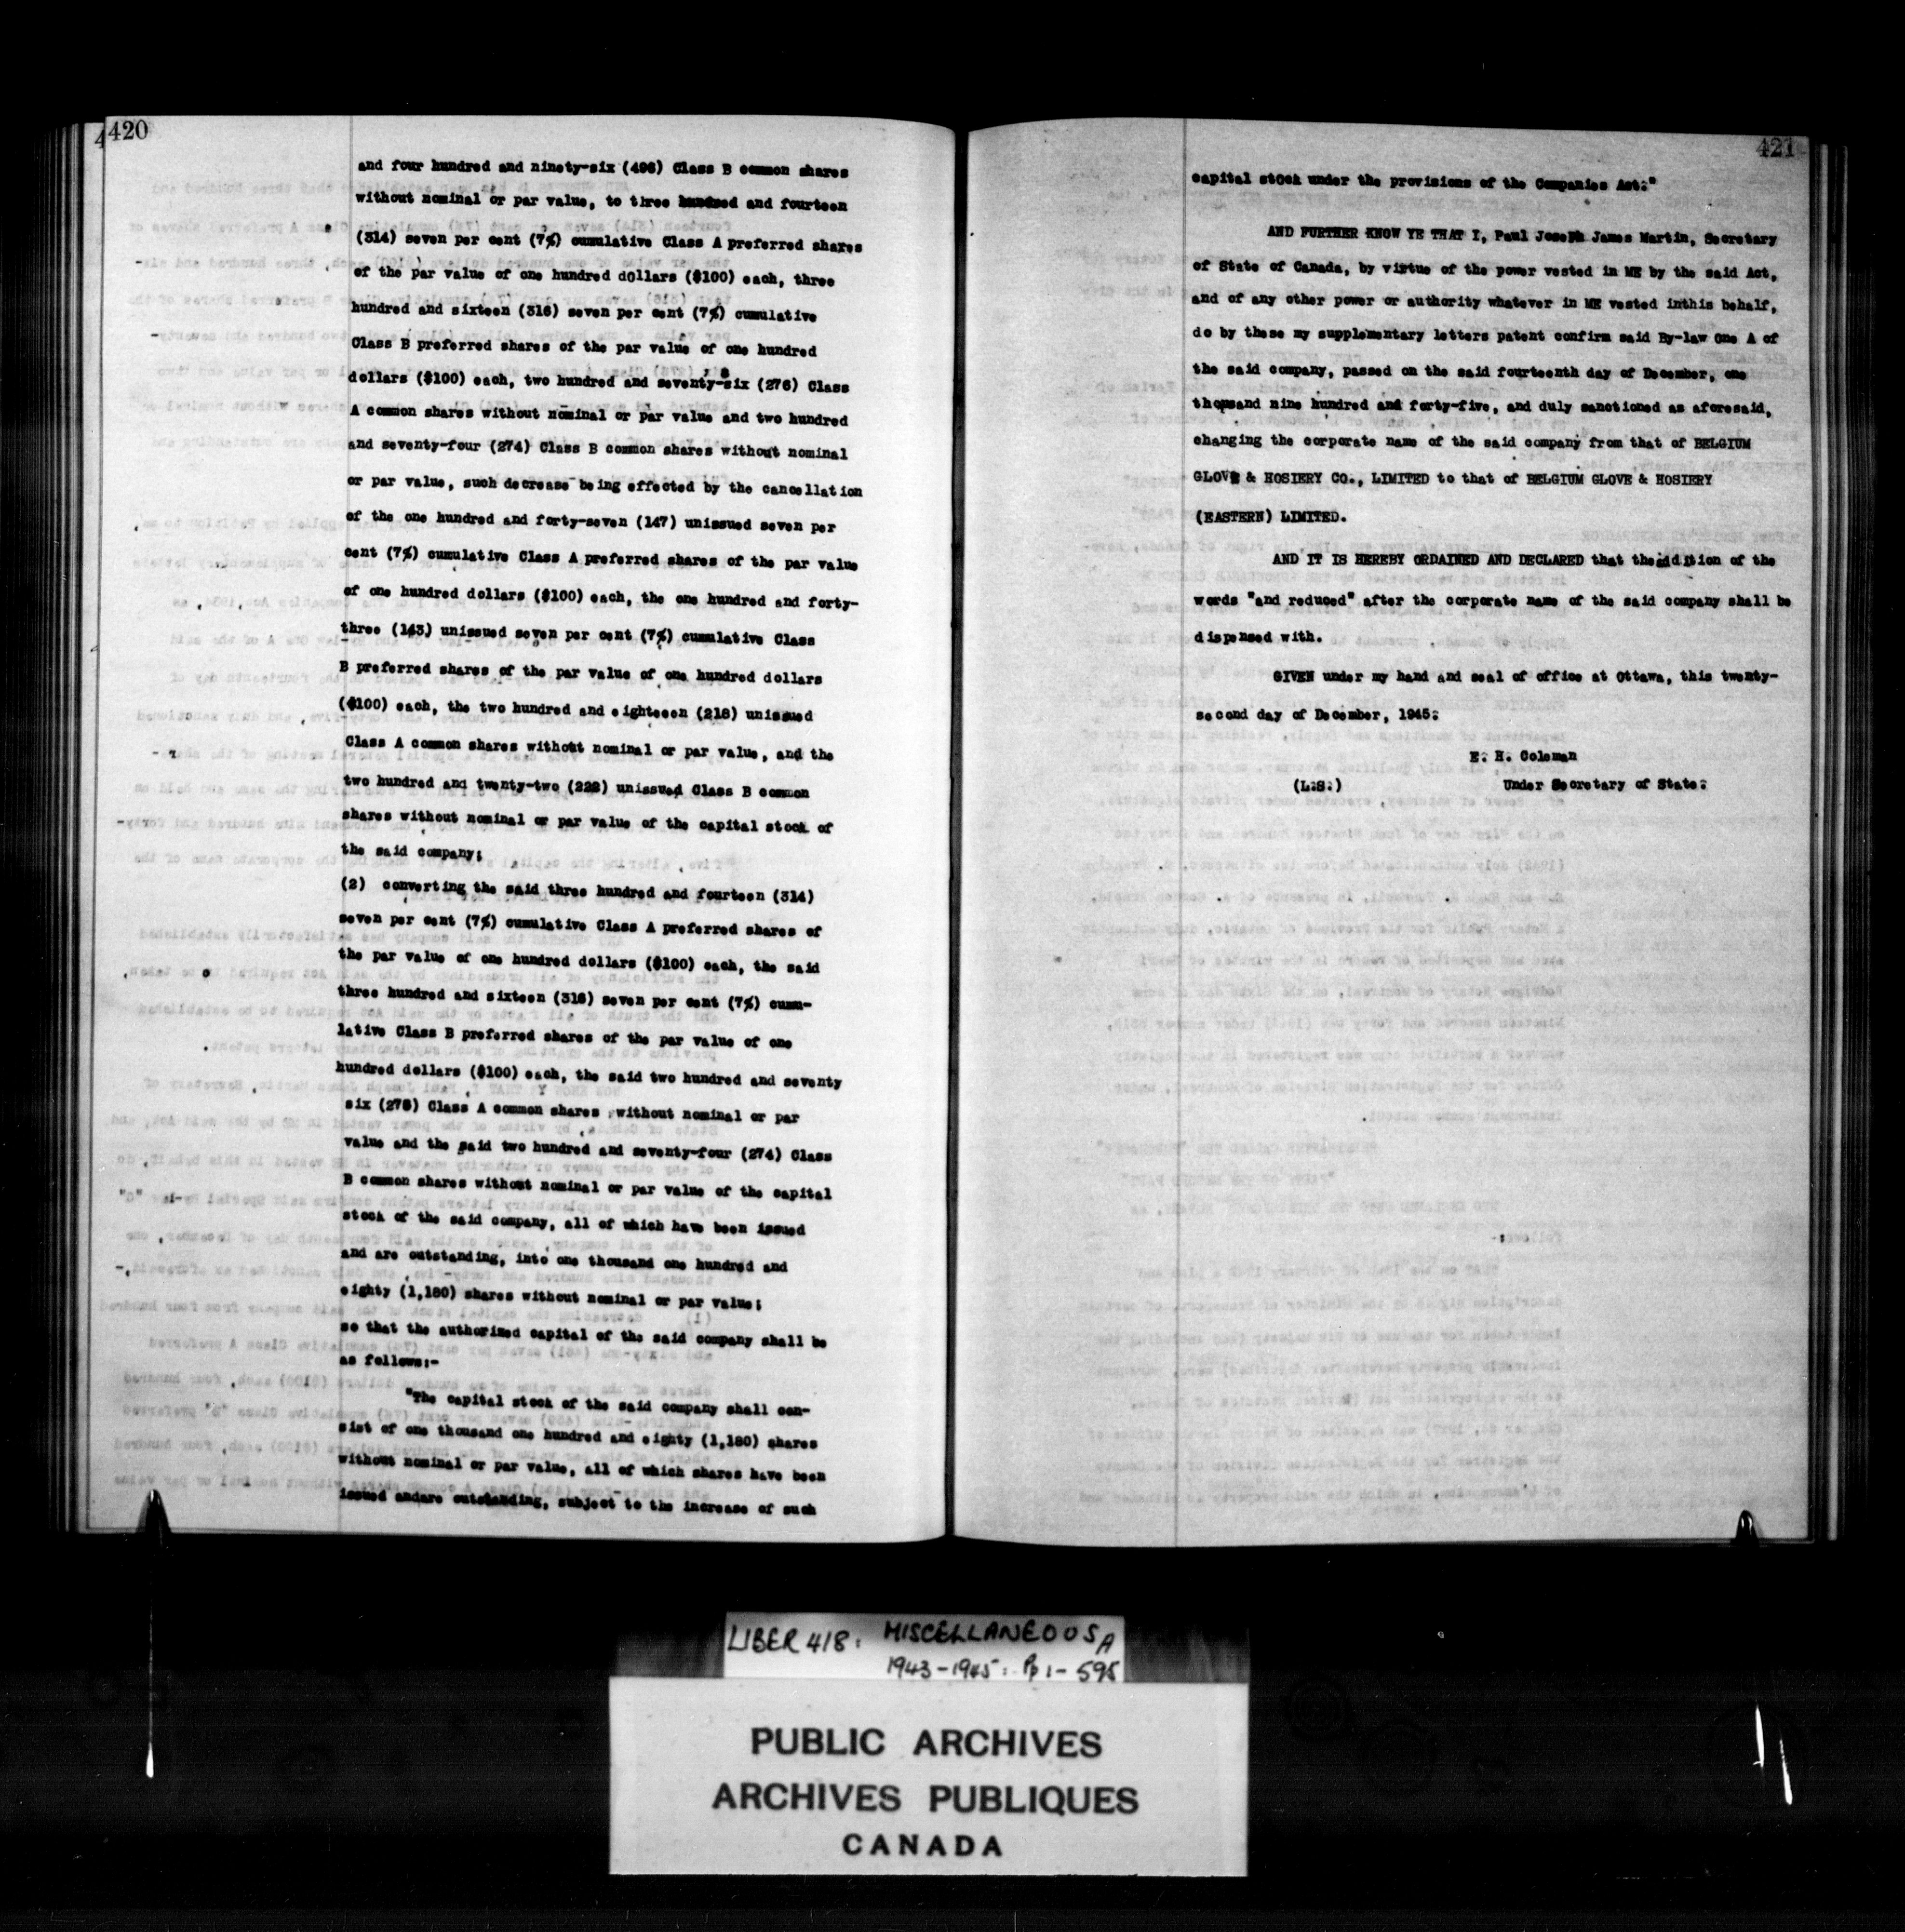 420
and four hundred and ninety-six (496) Class B common shares
without nominal or par value, to three hundred and fourteen
(314) seven per cent (7%) cumulative Class A preferred shares
of the par value of one hundred dollars ($100) each, three
hundred and sixteen (316) seven per cent (7%) cumulative
Class B preferred shares of the par value of one hundred
dollars ($100) each, two hundred and seventy-six (276) Class
A common shares without nominal or par value and two hundred
and seventy-four (274) Class B common shares without nominal
or par value, such decrease being effected by the cancellation
of the one hundred and forty-seven (147) unissued seven per
cent (7%) cumulative Class A preferred shares of the par value
of one hundred dollars ($100) each, the one hundred and forty-
three (143) unissued seven per cent (7%) cumulative Class
B preferred shares of the par value of one hundred dollars
($100) each, the two hundred and eighteeen (218) unissued
Class A common shares without nominal or par value, and the
two hundred and twenty-two (222) unissued Class B common
shares without nominal or par value of the capital stock of
the said company;
(2) converting the said three hundred and fourteen (314)
seven per cent (7%) cumulative Class A preferred shares of
the par value of one hundred dollars ($100) each, the said
three hundred and sixteen (316) seven per cent (7%) cumu-
lative Class B preferred shares of the par value of one
hundred dollars ($100) each, the said two hundred and seventy
six (276) Class A common shares without nominal or par
value and the said two hundred and seventy-four (274) Class
B common shares without nominal or par value of the capital
stock of the said company, all of which have been issued
and are outstanding, into one thousand one hundred and
eighty (1,180) shares without nominal or par value;
so that the authorized capital of the said company shall be
as follows:-
"The capital stock of the said company shall con-
sist of one thousand one hundred and eighty (1,180) shares
without nominal or par value, all of which shares have been
issued andare outstanding, subject to the increase of such
421
capital stock under the provisions of the Companies Act."
AND FURTHER KNOW YE THAT I, Paul Joseph James Martin, Secretary
of State of Canada, by virtue of the power vested in ME by the said Act,
and of any other power or authority whatever in ME vested inthis behalf,
do by these my supplementary letters patent confirm said By-law One A of
the said company, passed on the said fourteenth day of December, one
thousand nine hundred and forty-five, and duly sanctioned as aforesaid,
changing the corporate name of the said company from that of BELGIUM
GLOVE & HOSIERY CO., LIMITED to that of BELGIUM GLOVE & HOSIERY
(EASTERN) LIMITED.
AND IT IS HEREBY ORDAINED AND DECLARED that theaddition of the
words "and reduced" after the corporate name of the said company shall be
dispensed with.
GIVEN under my hand and seal of office at Ottawa, this twenty-
second day of December, 1945.
E. H. Coleman
(L.S.) Under Secretary of State.
LIBER 418: MISCELLANEOUS A
1943-1945: Pp 1-595
PUBLIC ARCHIVES
ARCHIVES PUBLIQUES
CANADA